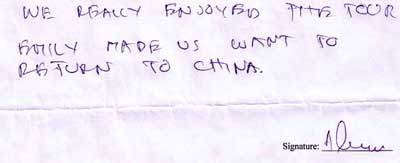 WE REALLY ENJOYED THE TOUR
EMILY MADE US WANT TO
RETURN TO CHINA.
Signature: